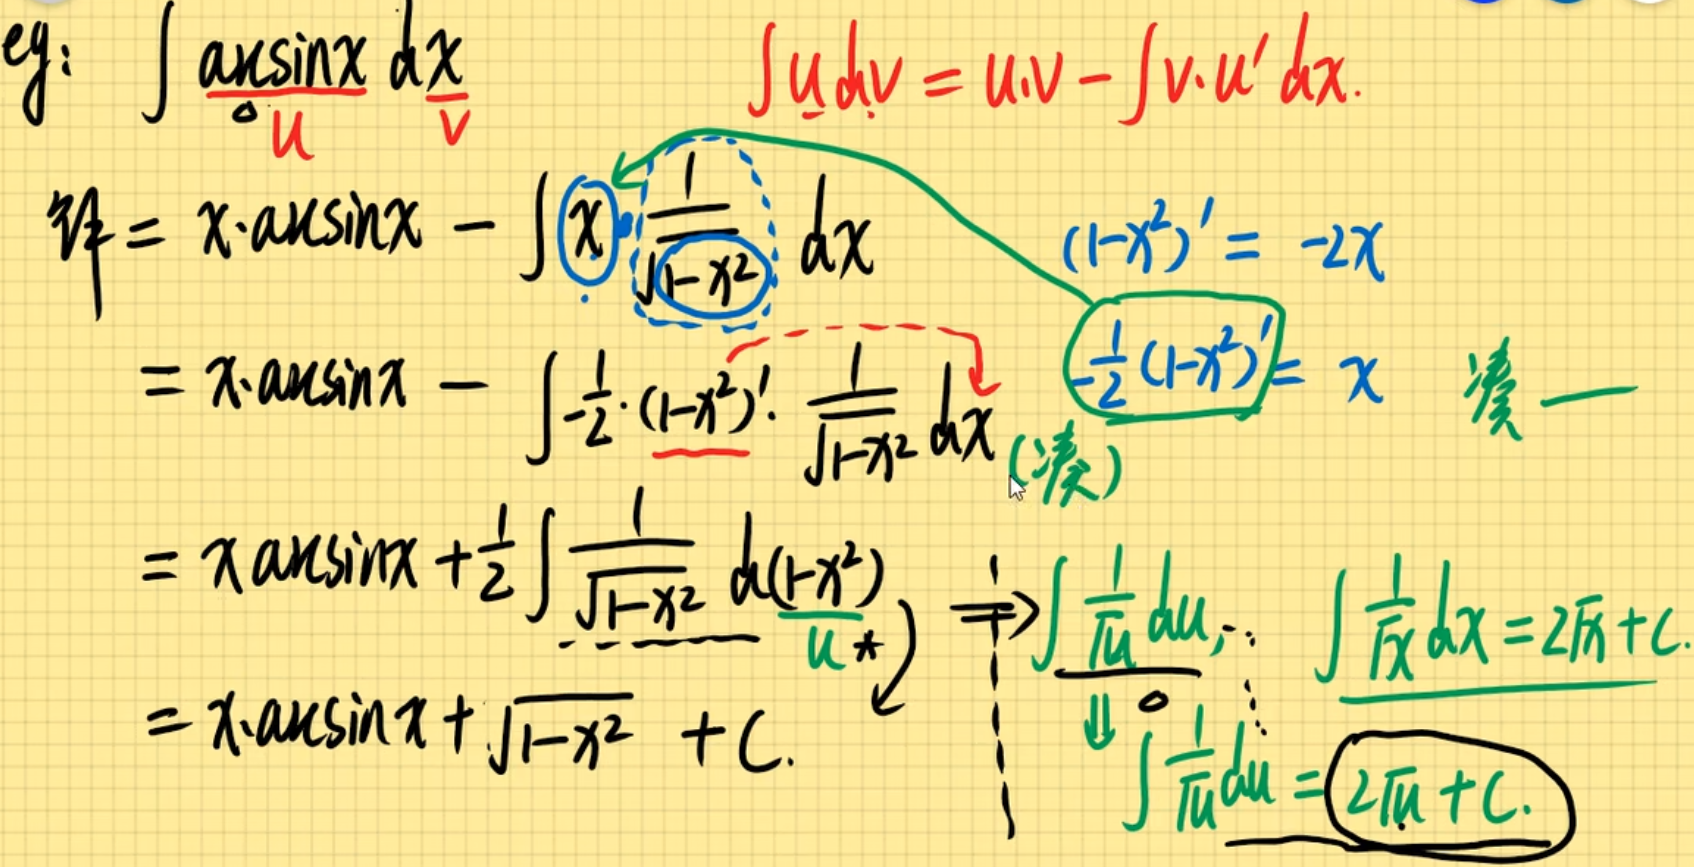 eg: ∫ arcsinx dx
u v
∫udv = u·v - ∫v·u'dx.
解 = x·arcsinx - ∫x·1/√(1-x²) dx
(1-x²)' = -2x
-1/2(1-x²)' = x 凑一
= x·arcsinx - ∫-1/2·(1-x²)'·1/√(1-x²) dx (凑)
= x arcsinx + 1/2∫1/√(1-x²) d(1-x²)
u *
⇒ ∫1/√u du, ∫1/√x dx = 2√x + C.
= x·arcsinx + √(1-x²) + C.
⇓ ∫1/√u du = 2√u + C.